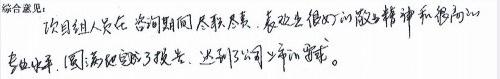 综合意见:
项目组人员在咨询期间尽职尽责,表现出很好的敬业精神和很高的
专业水平,圆满地完成了报告,达到了公司上市的要求。